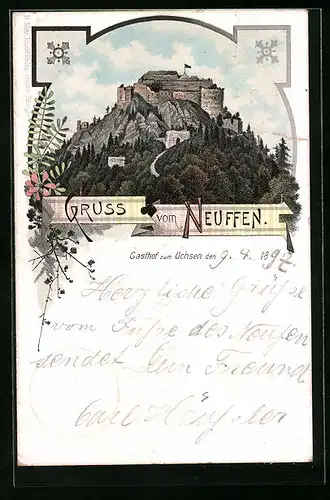 GRUSS VOM NEUFFEN.
Gasthof zum Ochsen den 9. 4. 1897
Herzliche Grüße
vom Fuße des Neufen
sendet Dein Freund
Carl